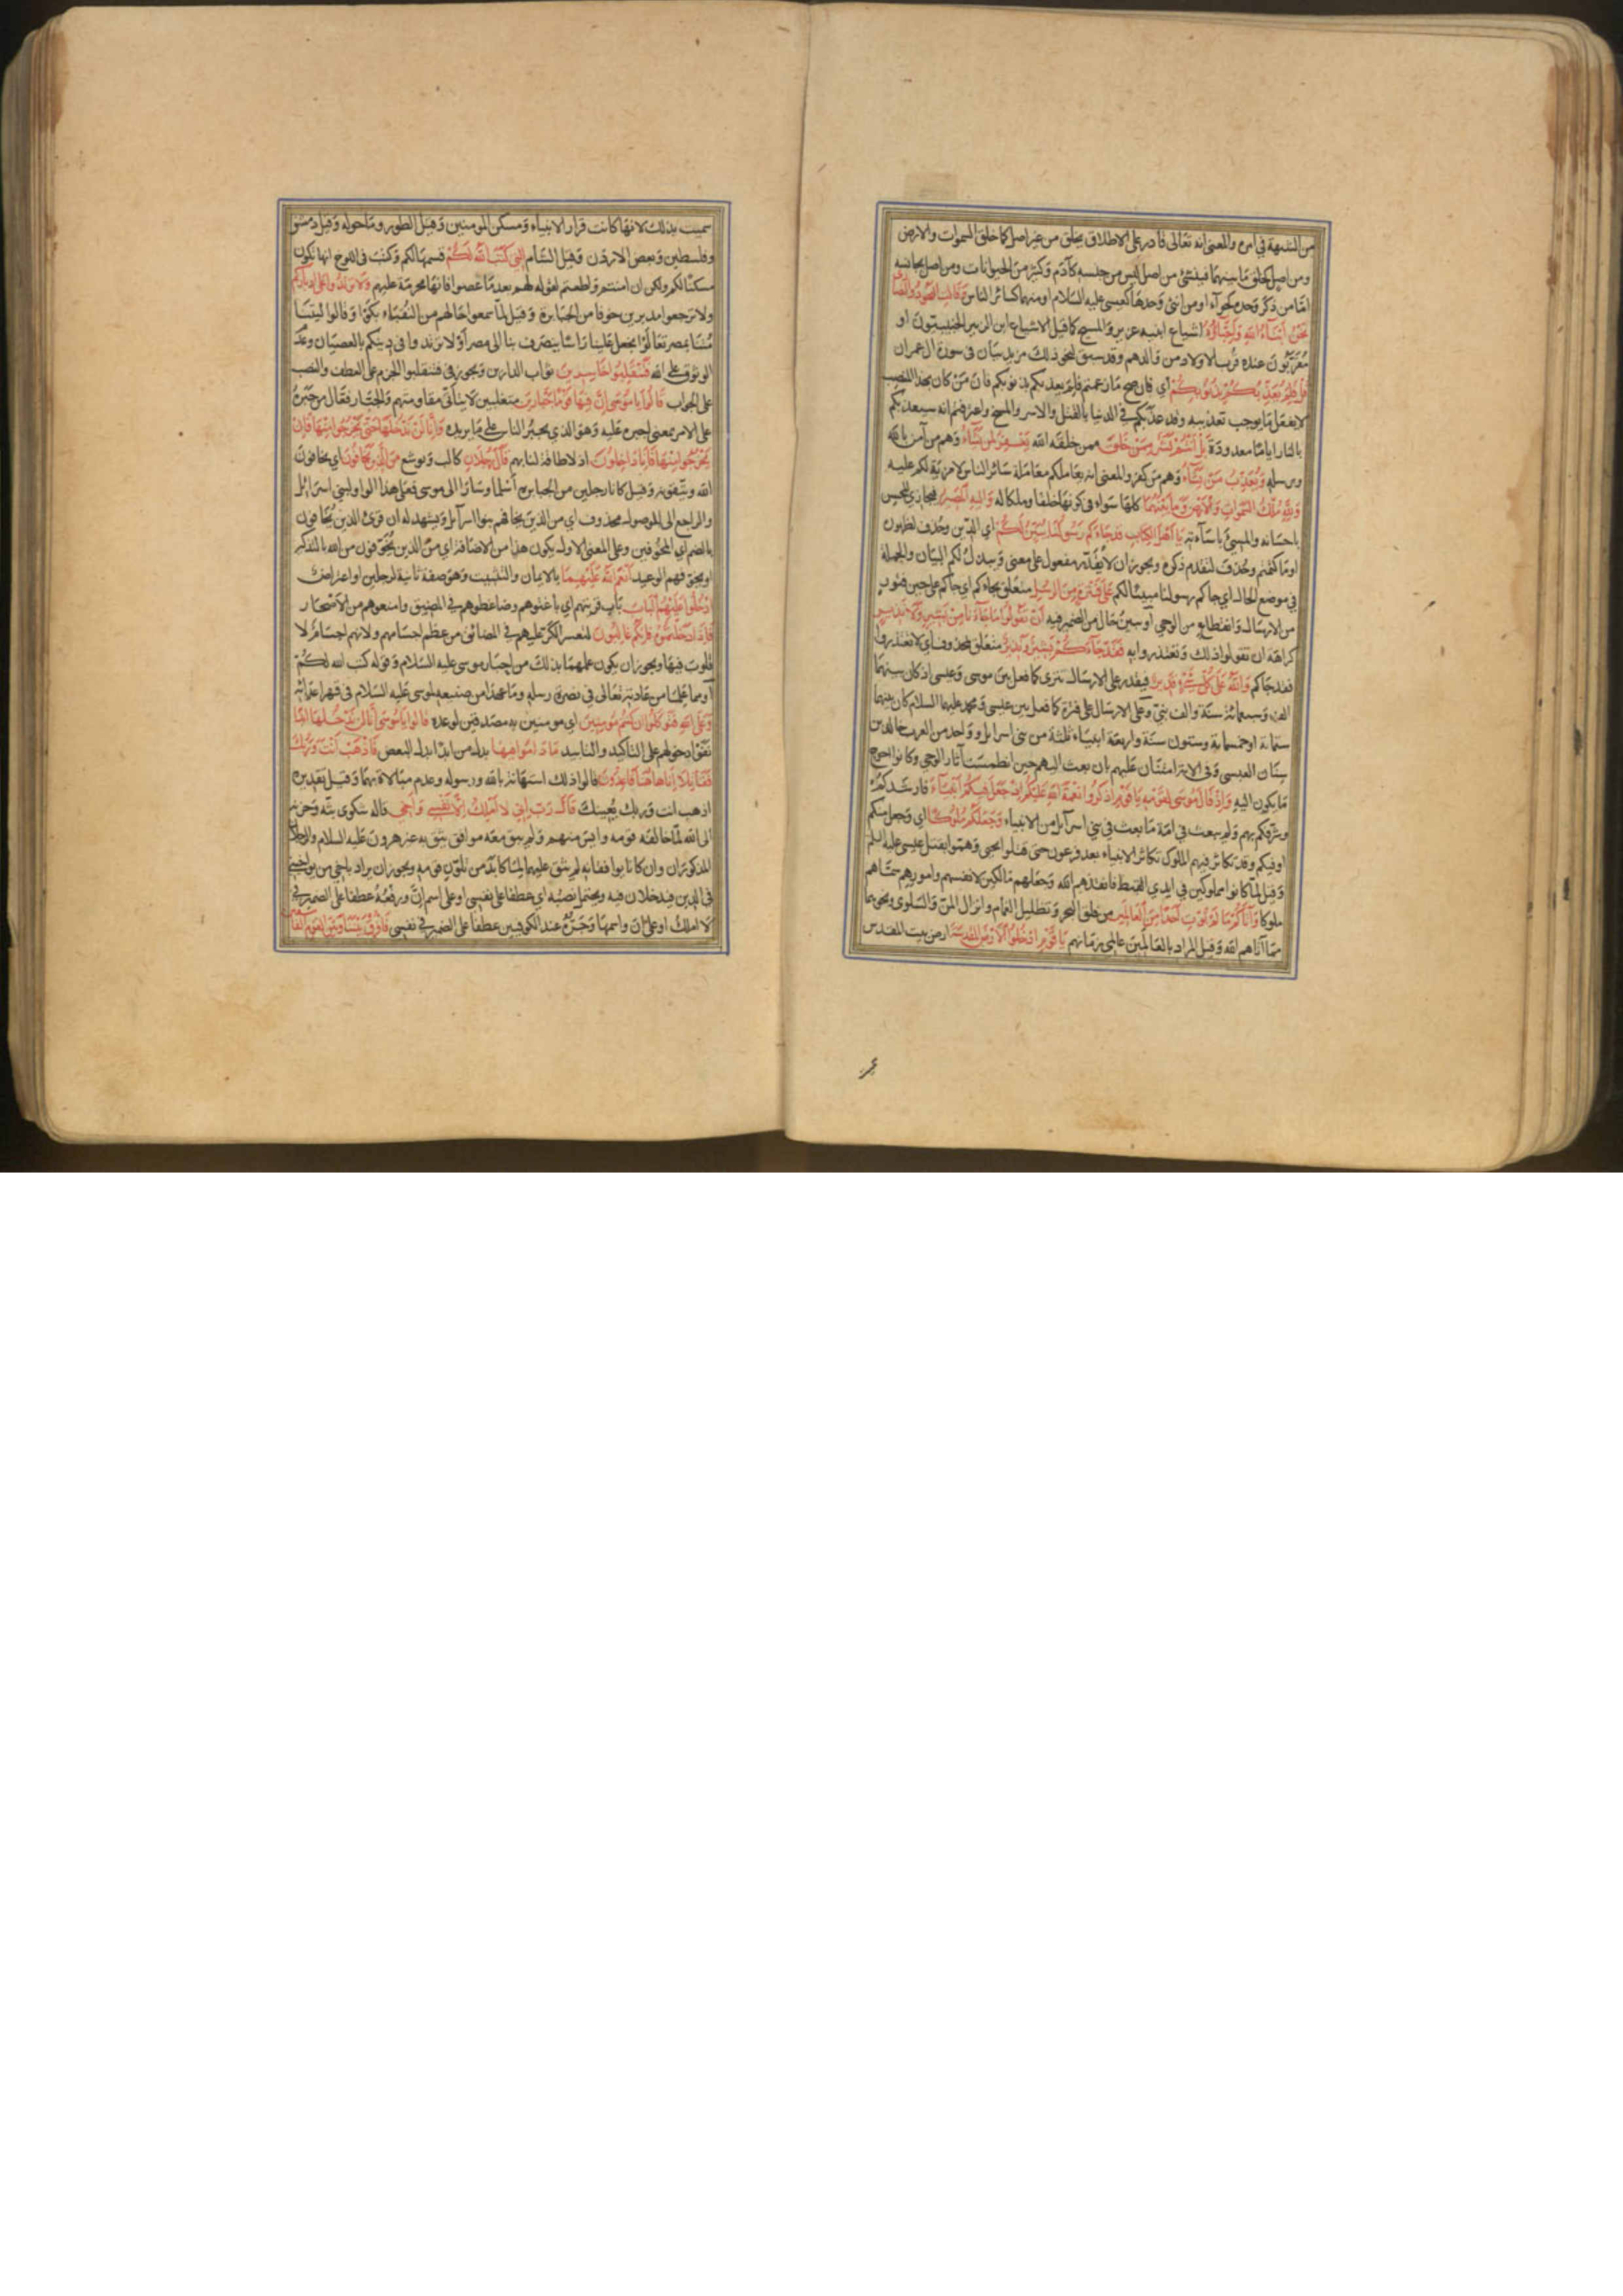 من الشبهة في امره والمعنى انه تعالى قادر على الاطلاق يخلق من غير اصل كما خلق السموات والارض
ومن اصل كخلق ما بينهما فينشئ من اصل ليس من جنسه كآدم وكثير من الحيوانات ومن اصل يجانسه
اما من ذكر وحده كحوآء او من انثى وحدها كعيسى عليه السلام او منهما كسائر الناس وقالت اليهود والنصارى
نحن ابناء الله واحباؤه اشياع ابنيه عزير والمسيح كما قيل لاشياع ابن الزبير الخبيبيون او
مقربون عنده قرب الاولاد من والدهم وقد سبق لنحو ذلك مزيد بيان في سورة ال عمران
قل فلم يعذبكم بذنوبكم اي فان صح ما زعمتم فلم يعذبكم بذنوبكم فان من كان بهذا المنصب
لا يفعل ما يوجب تعذيبه وقد عذبكم في الدنيا بالقتل والاسر والمسخ واعترفتم انه سيعذبكم
بالنار اياما معدودة بل انتم بشر ممن خلق ممن خلقه الله يغفر لمن يشاء وهم من آمن بالله
ورسله ويعذب من يشاء وهم من كفر والمعنى انه يعاملكم معاملة سائر الناس لا مزية لكم عليه
ولله ملك السموات والارض وما بينهما كلها سواء في كونها خلقا وملكا له واليه المصير فيجازي المحسن
باحسانه والمسئ باسآءته يا اهل الكتاب قد جاءكم رسولنا يبين لكم اي الدين وحذف لظهوره
او ما كتمتم وحذف لتقدم ذكره ويجوز ان لا يقدر مفعول على معنى يبذل لكم البيان والجملة
في موضع الحال اي جاكم رسولنا مبينا لكم على فترة من الرسل متعلق بجاءكم اي جاكم على حين فتور
من الارسال وانقطاع من الوحي او يبين حال من الضمير فيه ان تقولوا ما جاءنا من بشير ولا نذير
كراهة ان تقولوا ذلك وتعتذروا به فقد جاءكم بشير ونذير متعلق بمحذوف اي لا تعتذروا
فقد جاكم والله على كل شئ قدير فيقدر على الارسال تترى كما فعل بين موسى وعيسى اذ كان بينهما
الف وسبعمائة سنة والف نبي وعلى الارسال على فترة كما فعل بين عيسى ومحمد عليهما السلام كان بينهما
ستمائة او خمسمائة وستون سنة واربعة انبياء ثلثة من بني اسرائل وواحد من العرب خالد بن
سنان العبسي وفي الاية امتنان عليهم بان بعث اليهم حين انطمست آثار الوحي وكانوا احوج
ما يكون اليه واذ قال موسى لقومه يا قوم اذكروا نعمة الله عليكم اذ جعل فيكم انبياء فارشدكم
وشرفكم بهم ولم يبعث في امة ما بعث في بني اسرآيل من الانبياء وجعلكم ملوكا اي وجعل منكم
او فيكم وقد تكاثر فيهم الملوك تكاثر الانبياء بعد فرعون حتى قتلوا يحيى وهموا بقتل عيسى عليه السلام
وقيل لما كانوا مملوكين في ايدي القبط فانقذهم الله وجعلهم مالكين لانفسهم وامورهم سماهم
ملوكا وآتاكم ما لم يؤت احدا من العالمين من فلق البحر وتظليل الغمام وانزال المن والسلوى ونحوها
مما آتاهم الله وقيل المراد بالعالمين عالمي زمانهم يا قوم ادخلوا الارض المقدسة ارض بيت المقدس
سميت بذلك لانها كانت قرار الانبياء ومسكن المومنين وقيل الطور وما حوله وقيل دمشق
وفلسطين وبعض الاردن وقيل الشام التي كتب الله لكم قسمها لكم وكتب في اللوح انها تكون
مسكنا لكم ولكن ان امنتم واطعتم لقوله لهم بعد ما عصوا فانها محرمة عليهم ولا ترتدوا على ادباركم
ولا ترجعوا مدبرين خوفا من الجبابرة وقيل لما سمعوا حالهم من النقباء بكوا وقالوا ليتنا
متنا بمصر تعالوا نجعل علينا راسا ينصرف بنا الى مصر او لا ترتدوا في دينكم بالعصيان وعدم
الوثوق على الله فتنقلبوا خاسرين ثواب الدارين ويجوز في فتنقلبوا الجزم على العطف والنصب
على الجواب قالوا يا موسى ان فيها قوما جبارين متغلبين لا يتاتى مقاومتهم والجبار فعال من جبره
على الامر بمعنى اجبره عليه وهو الذي يجبر الناس على ما يريده وانا لن ندخلها حتى يخرجوا منها فان
يخرجوا منها فانا داخلون اذ لا طاقة لنا بهم قال رجلان كالب ويوشع من الذين يخافون اي يخافون
الله ويتقونه وقيل كانا رجلين من الجبابرة اسلما وسارا الى موسى فعلى هذا الواو لبني اسرائل
والراجع الى الموصول محذوف اي من الذين يخافهم بنو اسرآيل ويشهد له ان قرئ الذين يخافون
بالضم اي المخوفين وعلى المعنى الاول يكون هذا من الاخافة اي من الذين يخوفون من الله بالتذكير
او يخوفهم الوعيد انعم الله عليهما بالايمان والتثبيت وهو صفة ثانية لرجلين او اعتراض
ادخلوا عليهم الباب باب قريتهم اي باغتوهم وضاغطوهم في المضيق وامنعوهم من الاصحار
فاذا دخلتموه فانكم غالبون لتعسر الكر عليهم في المضائق من عظم اجسامهم ولانهم اجسام لا
قلوب فيها ويجوز ان يكون علمهما بذلك من اخبار موسى عليه السلام وقوله كتب الله لكم
او مما علما من عادته تعالى في نصرة رسله وما عهدا من صنيعه لموسى عليه السلام في قهر اعدائه
وعلى الله فتوكلوا ان كنتم مومنين اي مومنين به مصدقين لوعده قالوا يا موسى انا لن ندخلها ابدا
نفوا دخولهم على التاكيد والتابيد ما داموا فيها بدل من ابدا بدل البعض فاذهب انت وربك
فقاتلا انا هاهنا قاعدون قالوا ذلك استهانة بالله ورسوله وعدم مبالاة بهما وقيل تقديره
اذهب انت وربك يعينك قال رب اني لا املك الا نفسي واخي قاله شكوى بثه وحزنه
الى الله لما خالفه قومه وايس منهم ولم يبق معه موافق يثق به غير هرون عليه السلام والرجلان
المذكوران وان كانا يوافقانه لم يثق عليهما لما كابد من تلون قومه ويجوز ان يراد باخي من يواخيني
في الدين فيدخلان فيه ويحتمل نصبه اي عطفا على نفسي او على اسم ان ورفعه عطفا على الضمير في
لا املك او على ان واسمها وجره عند الكوفيين عطفا على الضمير في نفسي فافرق بيننا وبين القوم الفاسقين